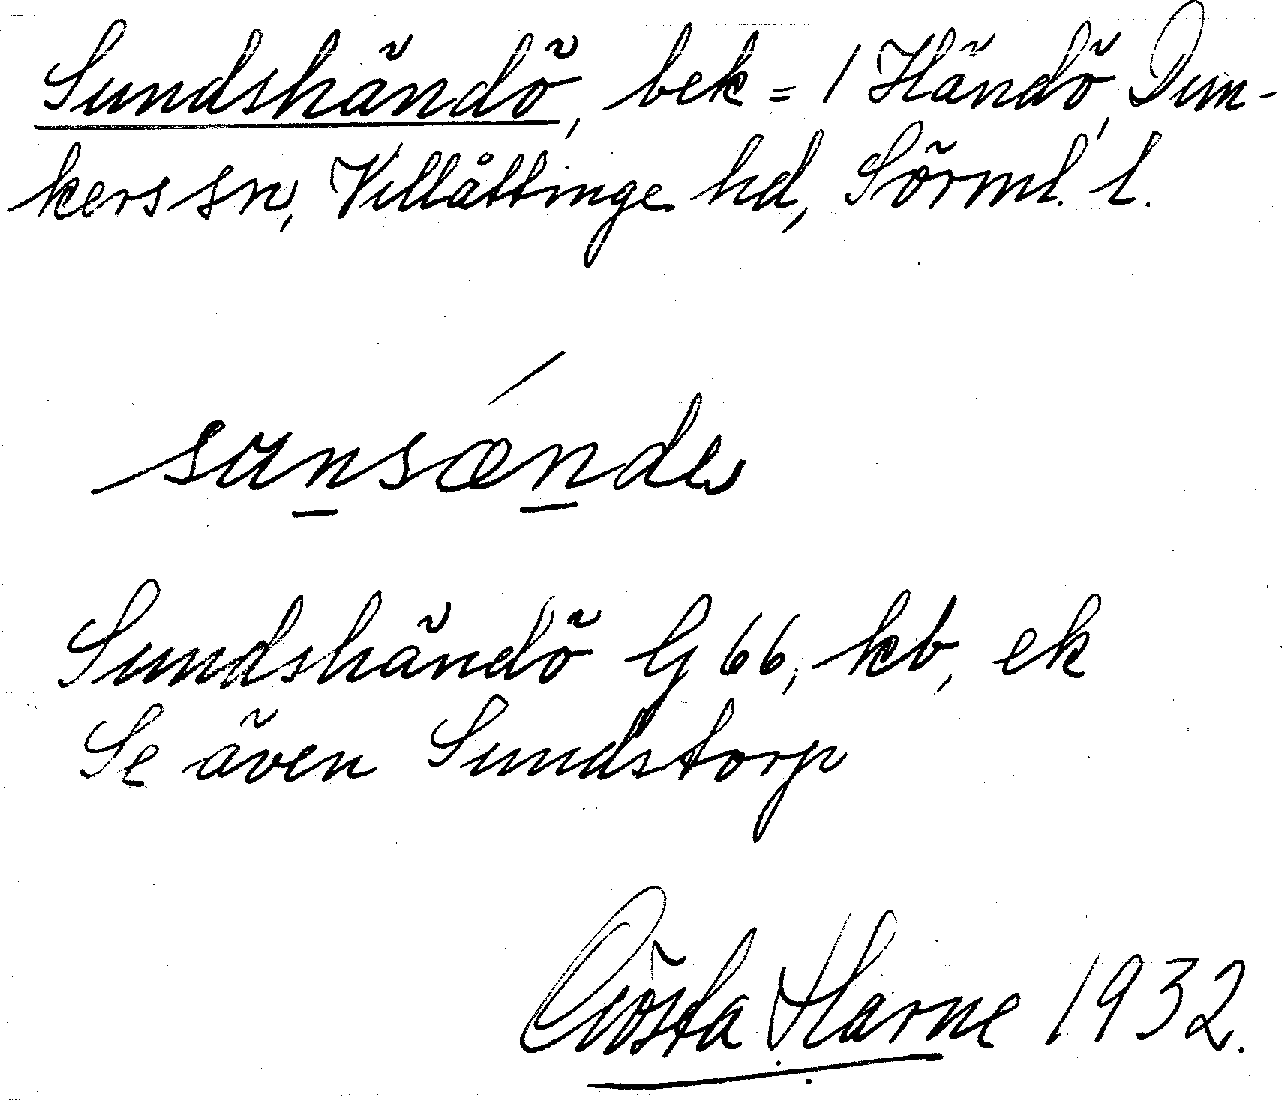 Sundshändö, bek = 1 Händö, Dun-
kers sn, Villåttinge hd, Sörml. l.
sunsǽnde
Sundshändö G 66, kb, ek
Se även Sundstorp
Gösta Harne 1932.